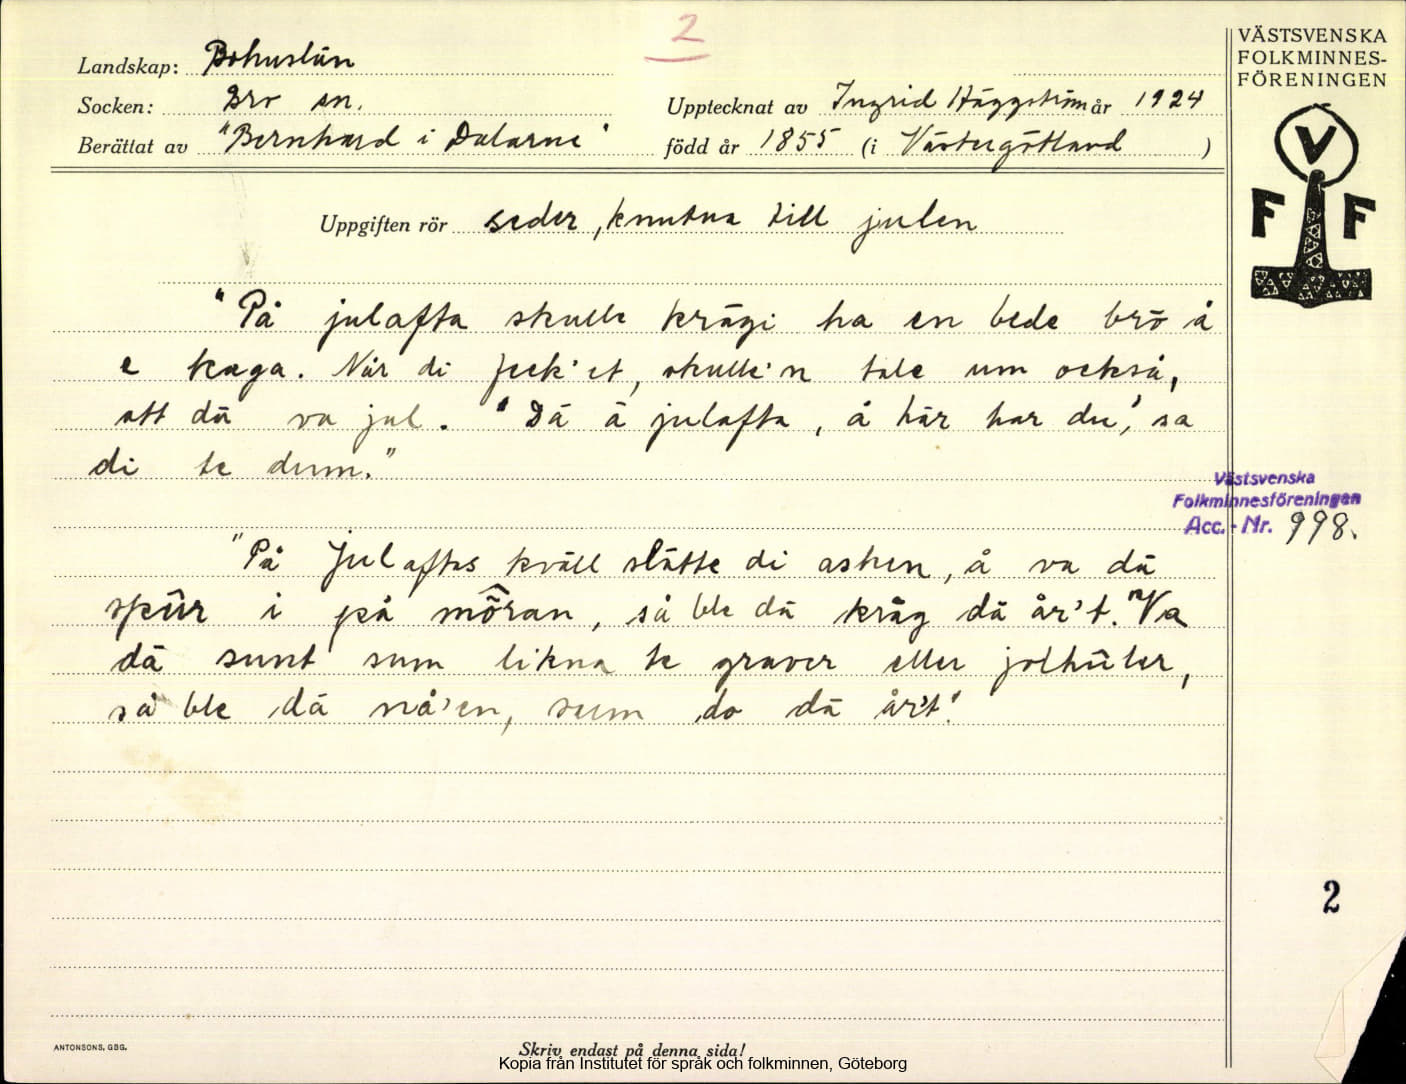 2
Landskap: Bohuslän
Socken: Bro sn.
Berättat av "Bernhard i Dalarne"
Upptecknat av Ingrid Häggström år 1924
född år 1855 (i Västergötland )
Uppgiften rör seder, knutna till julen
"På julafta skulle krägi ha en bede brö å
e kaga. När di feck'et, skulle'n tale um också,
att dä va jul. "Dä ä julafta, å här har du", sa
di te dum."
"På Julaftas kväll slätte di asken, å va dä
spûr i på môran, så ble dä kräg dä år't. "Va
dä sunt sum likna te graver eller jolhûler,
så ble dä nå'en, sum do dä år't."
VÄSTSVENSKA
FOLKMINNES-
FÖRENINGEN
V
F F
Västsvenska
Folkminnesföreningen
Acc.-Nr. 998.
2
ANTONSONS, GBG.
Skriv endast på denna sida!
Kopia från Institutet för språk och folkminnen, Göteborg